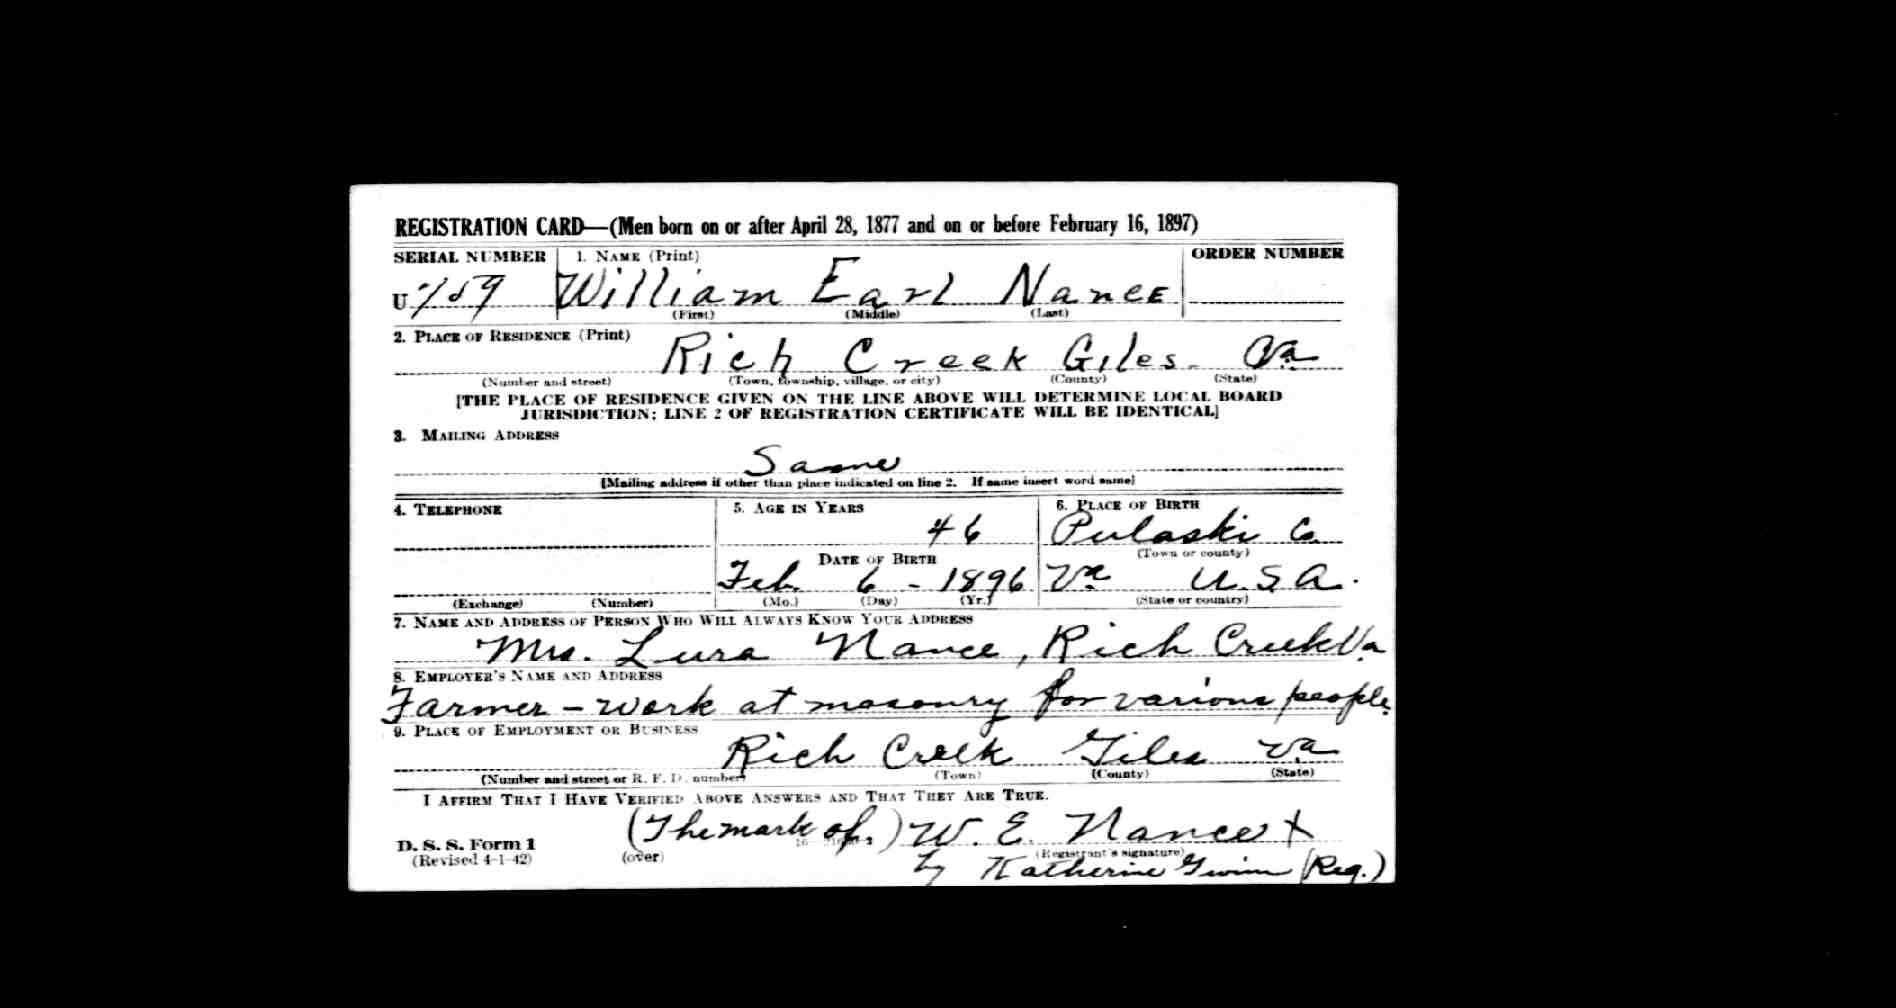 REGISTRATION CARD—(Men born on or after April 28, 1877 and on or before February 16, 1897)
SERIAL NUMBER 1. NAME (Print) ORDER NUMBER
U William Earl Nance
(First) (Middle) (Last)
2. PLACE OF RESIDENCE (Print)
Rich Creek Giles. Va.
(Number and street) (Town, township, village, or city) (County) (State)
[THE PLACE OF RESIDENCE GIVEN ON THE LINE ABOVE WILL DETERMINE LOCAL BOARD
JURISDICTION; LINE 2 OF REGISTRATION CERTIFICATE WILL BE IDENTICAL]
3. MAILING ADDRESS
Same
[Mailing address if other than place indicated on line 2. If same insert word same]
4. TELEPHONE 5. AGE IN YEARS 6. PLACE OF BIRTH
46 Pulaski Co.
DATE OF BIRTH (Town or county)
Feb. 6 - 1896 Va U.S.A.
(Exchange) (Number) (Mo.) (Day) (Yr.) (State or country)
7. NAME AND ADDRESS OF PERSON WHO WILL ALWAYS KNOW YOUR ADDRESS
Mrs. Lura Nance, Rich Creek Va.
8. EMPLOYER'S NAME AND ADDRESS
Farmer - work at masonry for various people.
9. PLACE OF EMPLOYMENT OR BUSINESS
Rich Creek Giles Va
(Number and street or R. F. D. number) (Town) (County) (State)
I AFFIRM THAT I HAVE VERIFIED ABOVE ANSWERS AND THAT THEY ARE TRUE.
(The mark of.) W. E. Nance X
D. S. S. Form 1
(Revised 4-1-42) (over) (Registrant's signature)
by Katherine Gwinn (Reg.)